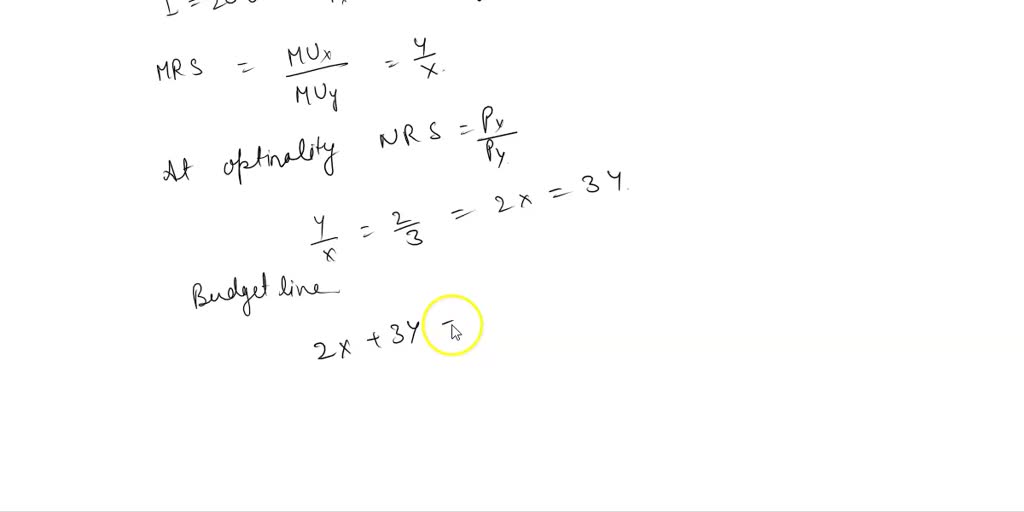 I = 20
MRS = MUx / MUy = y / x
At optimality NRS = Px / Py
y / x = 2 / 3 = 2x = 3y
Budget line
2x + 3y =